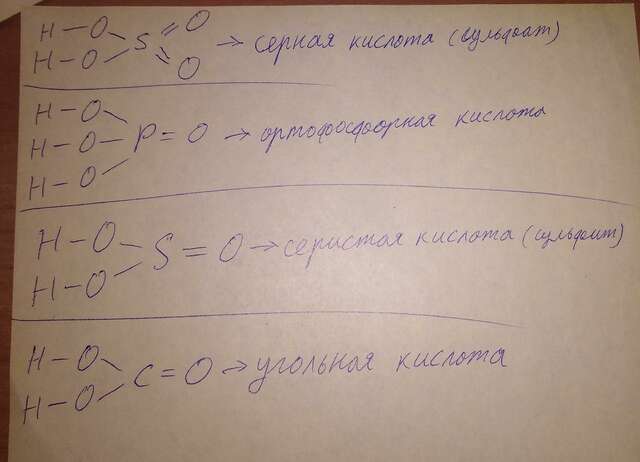 H-O
S=O → серная кислота (сульфат)
H-O
=O
H-O
H-O-P=O → ортофосфорная кислота
H-O
H-O
S=O → серистая кислота (сульфит)
H-O
H-O
C=O → угольная кислота
H-O